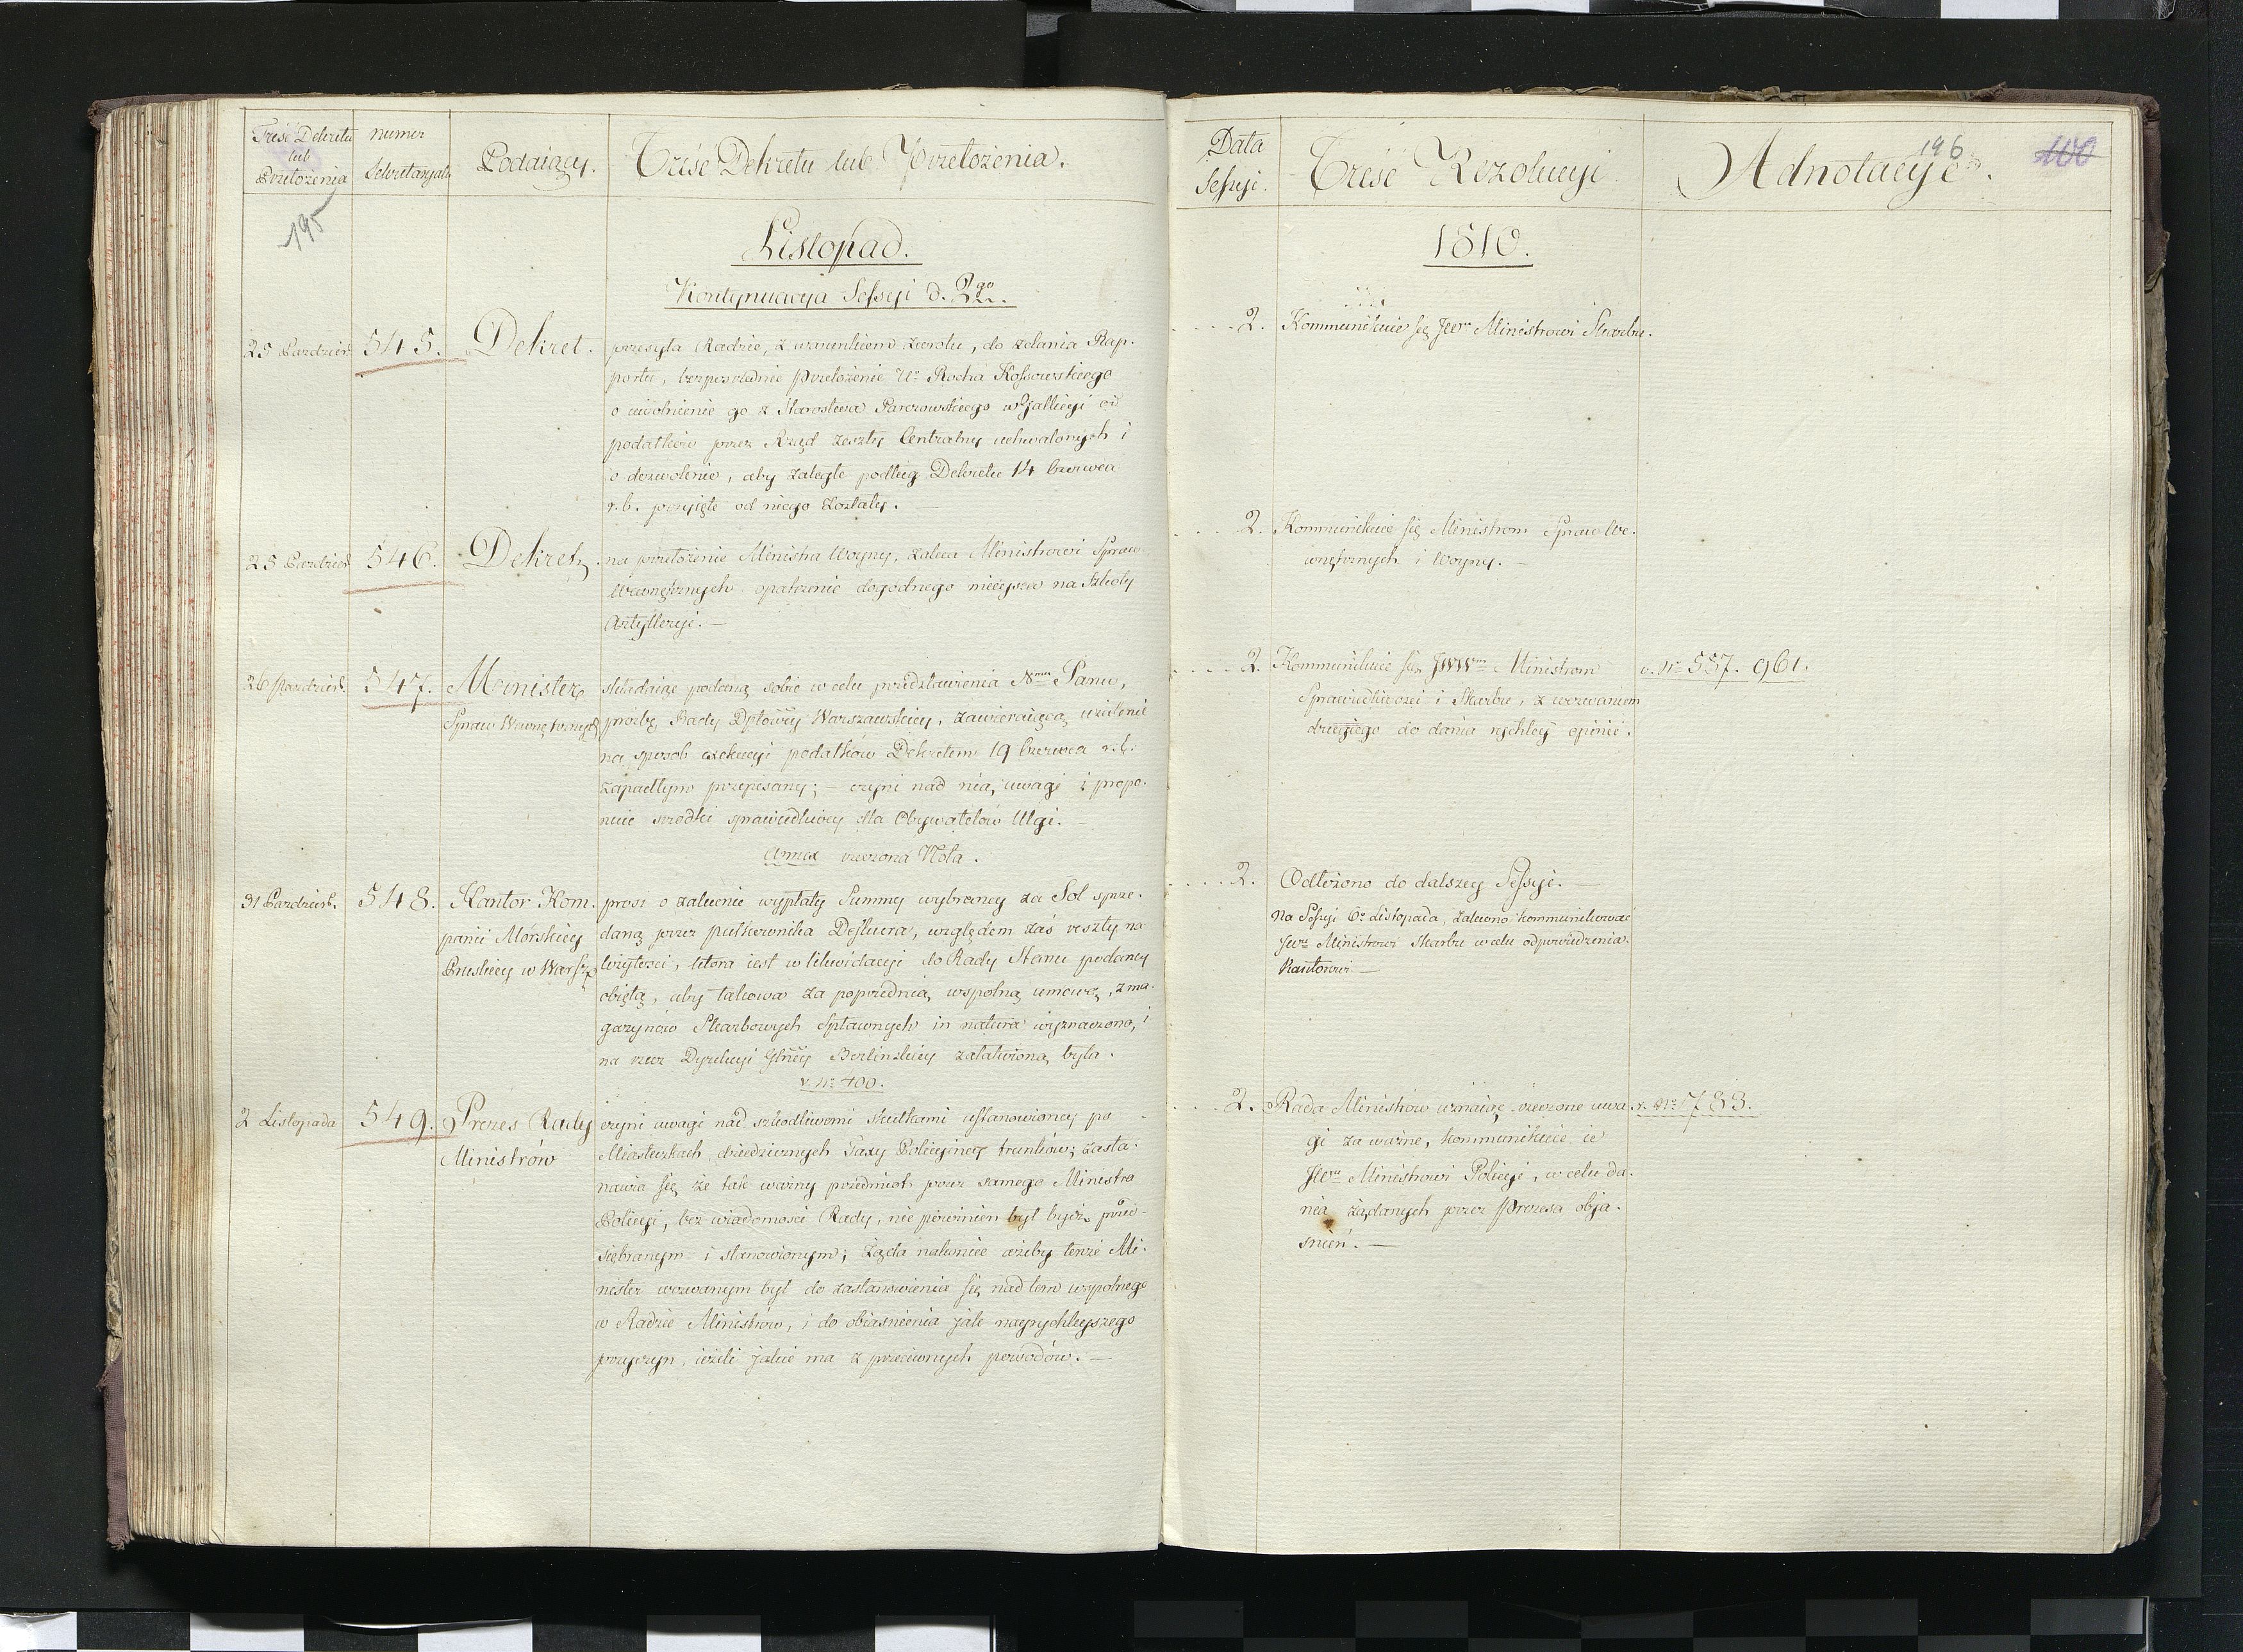 Treść Dekretu
lub
Przełożenia
numer
Sekretaryatu
Podaiący.
Treść Dekretu lub Przełożenia.
195
Listopad.
Kontynuacya Sessyi d. 2go
25 Pazdzier.
545.
Dekret.
przesyła Radzie, z warunkiem zwrotu, do zdania Rap-
portu, bezpośrednie przełożenie Ur. Rocha Kossowskiego
o uwolnienie go z Starostwa Parczowskiego w Gallicyi od
podatków przez Rząd zeszły Centralny uchwalonych i
o dozwolenie, aby zaległe podług Dekretu 14 Czerwca
r.b. przyięte od niego zostały.
25 Pazdzier.
546.
Dekret
na przełożenie Ministra Woyny, zaleca Ministrowi Spraw
Wewnętrznych opatrzenie dogodnego mieysca na Szkoły
Artylleryi. —
26 Pazdzier.
547.
Minister
Spraw Wewnętrznych
składaiąc podaną sobie w celu przedstawienia Nmu Panu,
prozbę Rady Dptowéy Warszawskiey, zawieraiącą użalenie
na sposob exekucyi podatków Dekretem 19 Czerwca r.b.
zapadłym przepisany; – czyni nad nią uwagi i propo-
nuie srodki sprawiedliwéy dla Obywatelów Ulgi. –
Annex rzeczona Nota.
31 Pazdzier.
548.
Kantor Kom-
panii Morskiey
Pruskiey w Warsz.
prosi o zalecenie wypłaty Summy wybraney za Sol sprze-
daną przez pułkownika Desłuera, względem zaś reszty na-
leżytości, która iest w likwidacyi do Rady Stanu podaney
obiętą, aby takowa za poprzednią wspolną umową, z ma-
gazynów Skarbowych Spławnych in natura wyznaczono, i
na rzecz Dyrekcyi Głnéy Berlińskiey załatwioną była.
v. Nr 400.
2 Listopada
549.
Prezes Rady
Ministrów
czyni uwagi nad szkodliwemi skutkami ustanowioney po
Miasteczkach dziedzicznych Taxy Policyiney trunków; zasta-
nawia się że tak ważny przedmiot przez samego Ministra
Policyi, bez wiadomości Rady, nie powinien był bydź przed-
siębranym i stanowionym; żąda nakoniec ażeby tenże Mi-
nister wezwanym był do zastanowienia się nad tem wspolnego
w Radzie Ministrów, i do obiasnienia jak nayrychleyszego
przyczyn, ieżeli jakie ma z przeciwnych powodów. —
Data
Sessyi.
Treść Rezolucyi
Adnotacye.
196
100
1810.
2.
Kommunikuie się JWmu Ministrowi Skarbu.
2.
Kommunikuie się Ministrom Spraw We-
wnętrznych i Woyny. –
2.
Kommunikuie się JWWm Ministrom
Sprawiedliwości i Skarbu, z wezwaniem
drugiego do dania rychłey opinii.
v. Nr 557. 961.
2.
Odłożono do dalszey Sessyi. —
Na Sessyi 6o Listopada, zalecono kommunikować
JWmu Ministrowi Skarbu w celu odpowiedzenia
Kantorowi —
2.
Rada Ministrów uznaiąc rzeczone uwa-
gi za ważne, kommunikuie ie
JWmu Ministrowi Policyi, w celu da-
nia żądanych przez Prezesa obja-
śnień. —
v. Nr 1783.